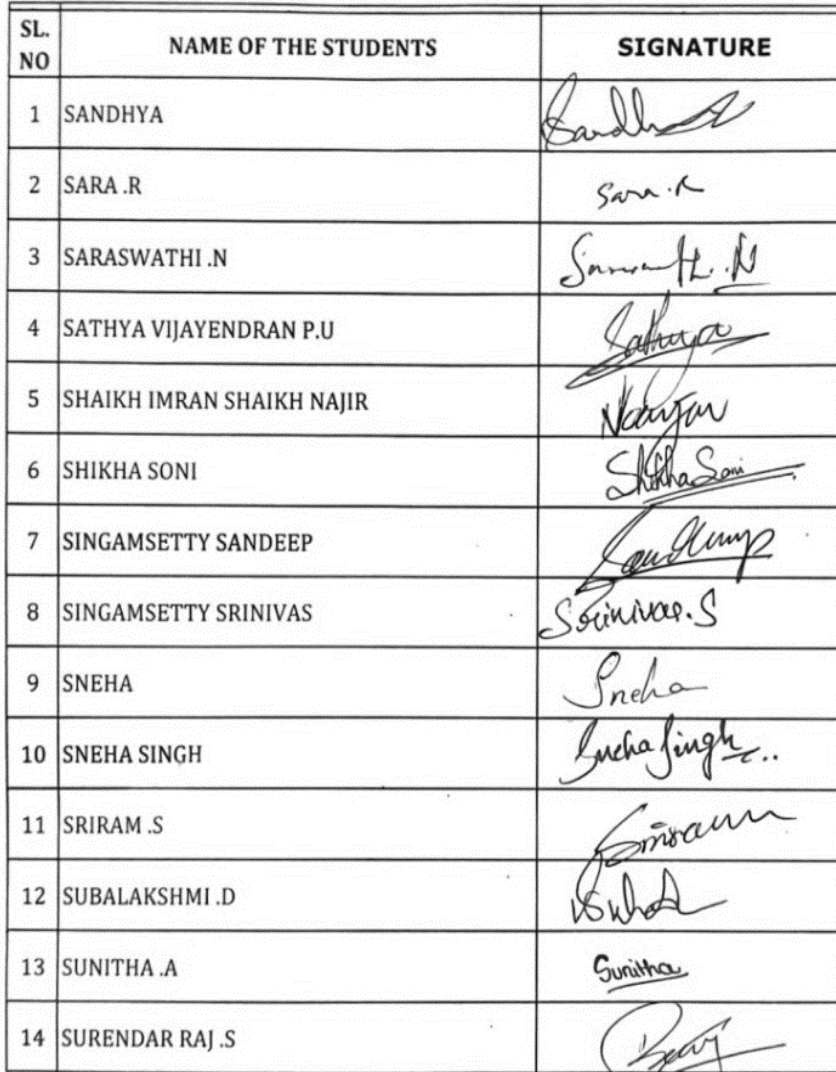 SL. NO NAME OF THE STUDENTS SIGNATURE
1 SANDHYA Sandhya
2 SARA .R Sara.R
3 SARASWATHI .N
4 SATHYA VIJAYENDRAN P.U Sathya
5 SHAIKH IMRAN SHAIKH NAJIR
6 SHIKHA SONI Shikha Soni
7 SINGAMSETTY SANDEEP
8 SINGAMSETTY SRINIVAS Srinivas.S
9 SNEHA Sneha
10 SNEHA SINGH Sneha Singh
11 SRIRAM .S
12 SUBALAKSHMI .D
13 SUNITHA .A Sunitha
14 SURENDAR RAJ .S